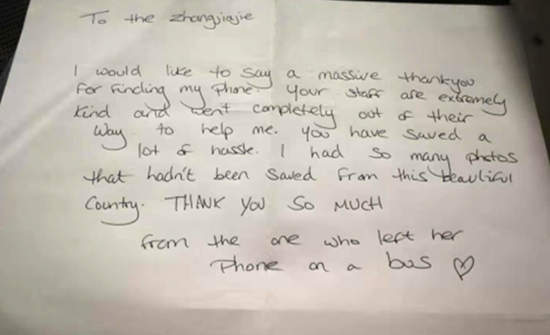 To the zhangjiajie
I would like to say a massive thankyou
for finding my phone. Your staff are extremely
kind and went completely out of their
way to help me. you have saved a
lot of hassle. I had so many photos
that hadn't been saved from this beautiful
Country. THANK YOU SO MUCH
from the one who left her
Phone on a bus ♡